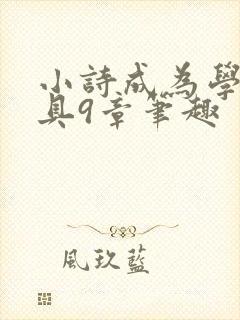 小詩成為學
具9章筆趣
風玖藍